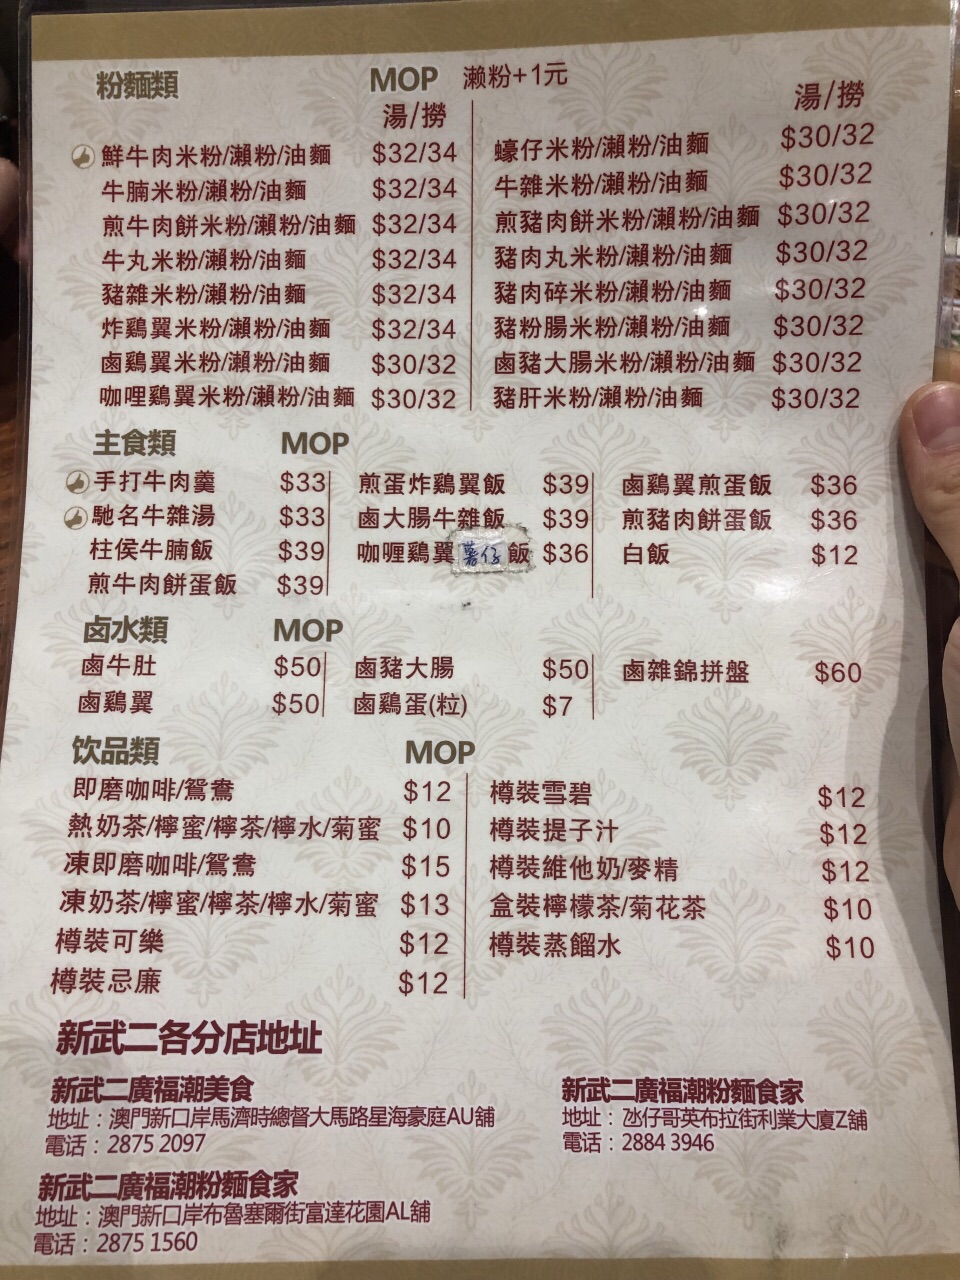 粉麵類 MOP 瀨粉+1元
湯/撈 湯/撈
鮮牛肉米粉/瀨粉/油麵 $32/34
牛腩米粉/瀨粉/油麵 $32/34
煎牛肉餅米粉/瀨粉/油麵 $32/34
牛丸米粉/瀨粉/油麵 $32/34
豬雜米粉/瀨粉/油麵 $32/34
炸鷄翼米粉/瀨粉/油麵 $32/34
鹵鷄翼米粉/瀨粉/油麵 $30/32
咖哩鷄翼米粉/瀨粉/油麵 $30/32
蠔仔米粉/瀨粉/油麵 $30/32
牛雜米粉/瀨粉/油麵 $30/32
煎豬肉餅米粉/瀨粉/油麵 $30/32
豬肉丸米粉/瀨粉/油麵 $30/32
豬肉碎米粉/瀨粉/油麵 $30/32
豬粉腸米粉/瀨粉/油麵 $30/32
鹵豬大腸米粉/瀨粉/油麵 $30/32
豬肝米粉/瀨粉/油麵 $30/32
主食類 MOP
手打牛肉羹 $33
馳名牛雜湯 $33
柱侯牛腩飯 $39
煎牛肉餅蛋飯 $39
煎蛋炸鷄翼飯 $39
鹵大腸牛雜飯 $39
咖喱鷄翼薯仔飯 $36
鹵鷄翼煎蛋飯 $36
煎豬肉餅蛋飯 $36
白飯 $12
卤水類 MOP
鹵牛肚 $50
鹵鷄翼 $50
鹵豬大腸 $50
鹵鷄蛋(粒) $7
鹵雜錦拼盤 $60
饮品類 MOP
即磨咖啡/鴛鴦 $12
熱奶茶/檸蜜/檸茶/檸水/菊蜜 $10
凍即磨咖啡/鴛鴦 $15
凍奶茶/檸蜜/檸茶/檸水/菊蜜 $13
樽裝可樂 $12
樽裝忌廉 $12
樽裝雪碧 $12
樽裝提子汁 $12
樽裝維他奶/麥精 $12
盒裝檸檬茶/菊花茶 $10
樽裝蒸餾水 $10
新武二各分店地址
新武二廣福潮美食
地址：澳門新口岸馬濟時總督大馬路星海豪庭AU舖
電话：2875 2097
新武二廣福潮粉麵食家
地址：氹仔哥英布拉街利業大廈Z舖
電话：2884 3946
新武二廣福潮粉麵食家
地址：澳門新口岸布魯塞爾街富達花園AL舖
電话：2875 1560